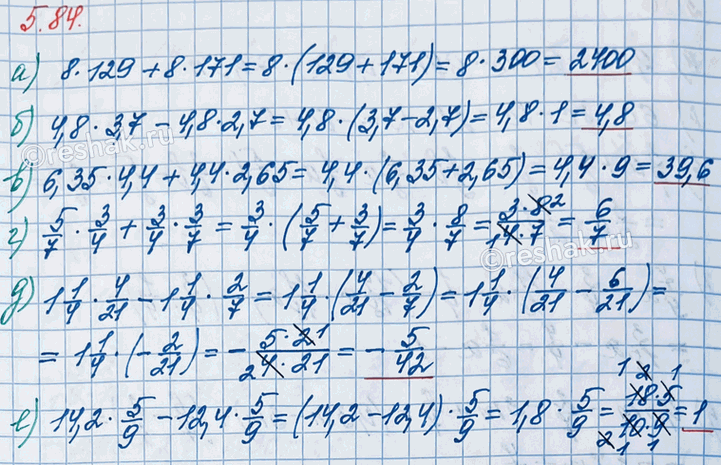 5.84.
а) 8·129+8·171=8·(129+171)=8·300=2400
б) 4,8·3,7-4,8·2,7=4,8·(3,7-2,7)=4,8·1=4,8
в) 6,35·4,4+4,4·2,65=4,4·(6,35+2,65)=4,4·9=39,6
г) 5/7·3/4+3/4·3/7=3/4·(5/7+3/7)=3/4·8/7=3·8 2/1 4·7=6/7
д) 1 1/4·4/21-1 1/4·2/7=1 1/4·(4/21-2/7)=1 1/4·(4/21-6/21)=
=1 1/4·(-2/21)=-5·2 1/2 4·21=-5/42
е) 14,2·5/9-12,4·5/9=(14,2-12,4)·5/9=1,8·5/9=1 2 1 18·5/10·9 2 1 1=1
reshak.ru
reshak.ru
reshak.ru